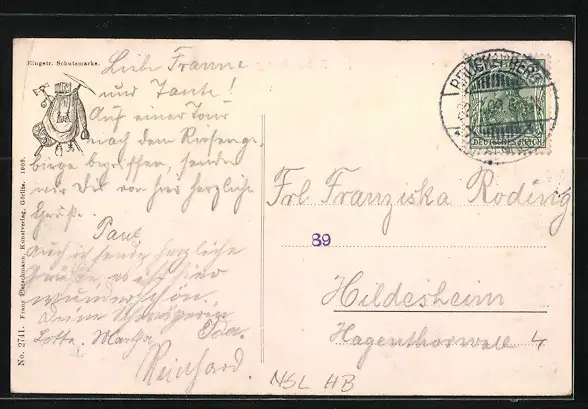 Eingetr. Schutzmarke.
Liebe Franne
und Tante!
Auf einer Tour
nach dem Riesenge-
birge begriffen, senden
wir Dir von hier herzliche
Grüße.
Paul
Auch ich sende herzliche
Grüße, es ist hier
wunderschön.
Deine
Lotte. Martha. Ida.
Reinhard.
No. 2741. Franz Pietschmann, Kunstverlag, Görlitz. 1909.
DEUTSCHES REICH
Frl. Franziska Roding
89
Hildesheim
Hagenthorwall 4
NSL HB